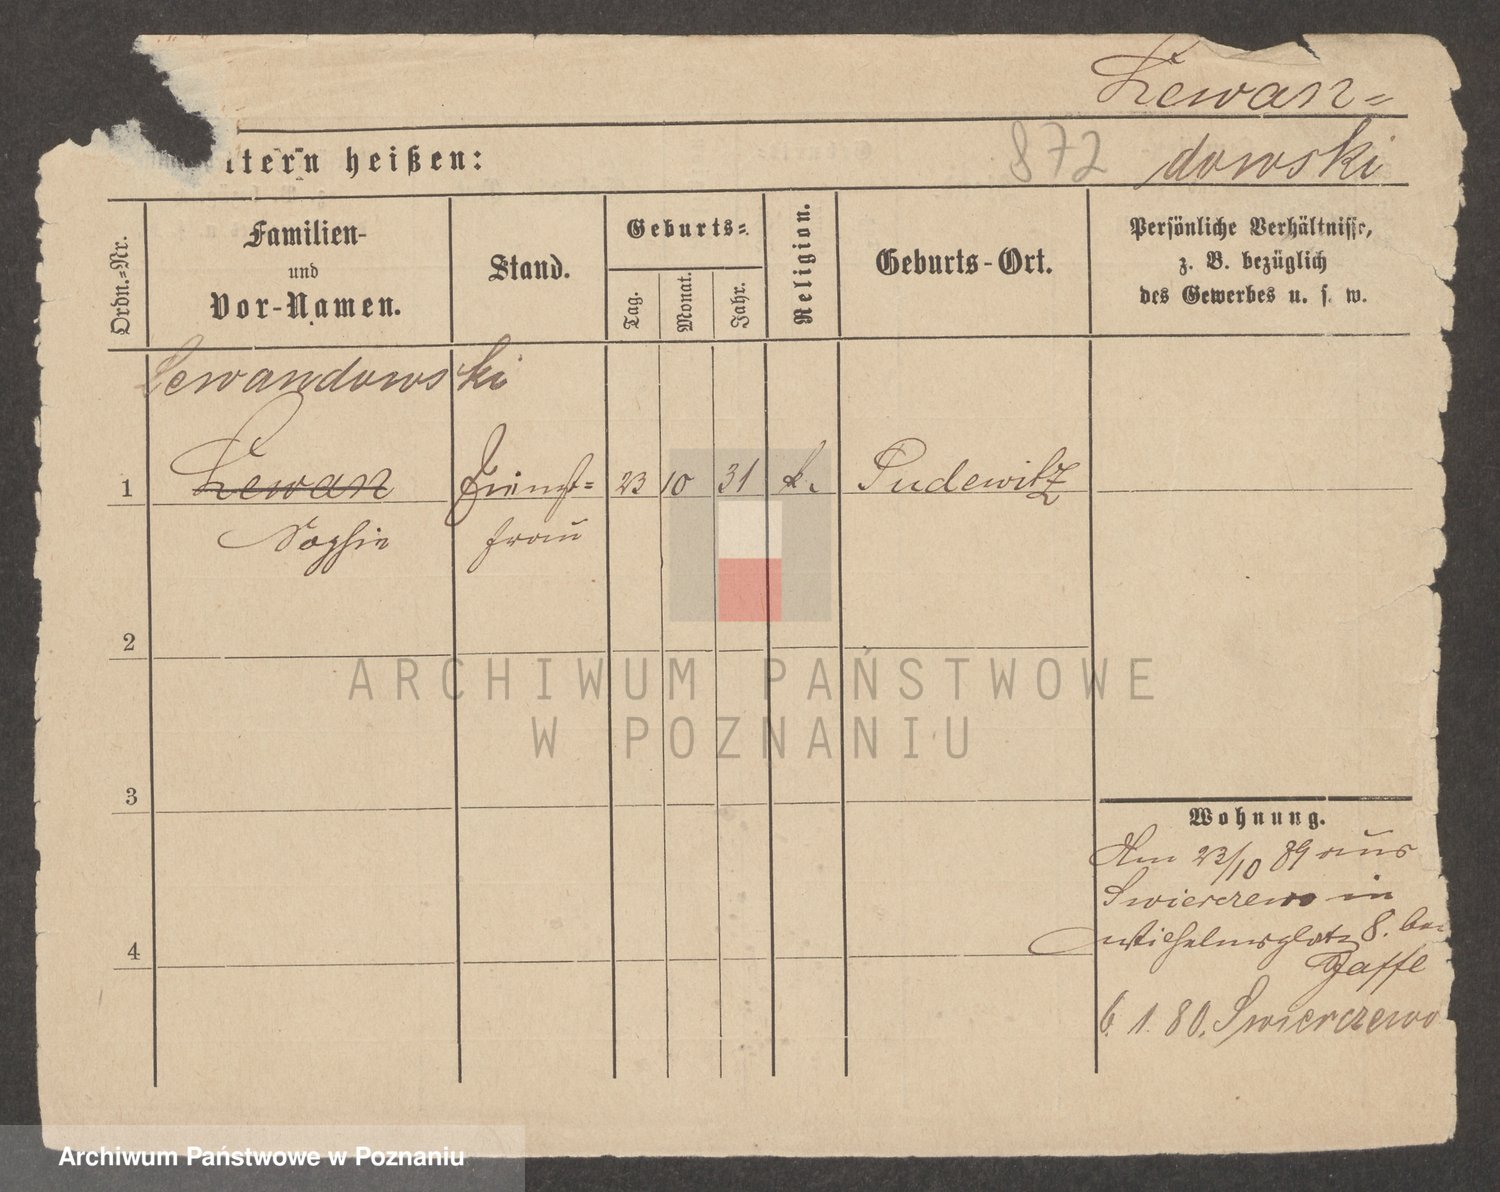 Lewan=
ltern heißen:
872
dowski
Ordn.-Nr.
Familien-
und
Vor-Namen.
Stand.
Geburts=
Tag.
Monat.
Jahr.
Religion.
Geburts-Ort.
Persönliche Verhältnisse,
z. B. bezüglich
des Gewerbes u. s. w.
Lewandowski
1 Lewan Dienst= 23 10 31 k. Pudewitz
Sophie frau
2
3
4
Wohnung.
Am 23/10 89 aus
Swierczewo in
Wilhelmsplatz 8. bei
Jaffe
6. 1. 80. Swierczewo
ARCHIWUM PAŃSTWOWE
W POZNANIU
Archiwum Państwowe w Poznaniu